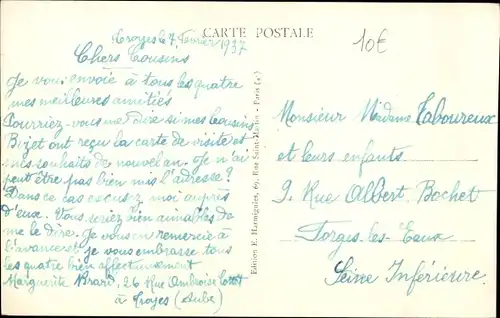 CARTE POSTALE
Troyes le 7 Fevrier 1937
10€
Chers Cousins
Je vous envoie à tous les quatre
mes meilleures amitiés
Pourriez-vous me dire si mes cousins
Bizet ont reçu la carte de visite et
mes souhaits de nouvel an. Je n'ai
peut être pas bien mis l'adresse ?
Dans ce cas excusez moi auprès
d'eux. Vous seriez bien aimables de
me le dire. Je vous en remercie à
l'avance et je vous embrasse tous
les quatre bien affectueusement
Marguerite 26 Rue Ambroise
à Troyes (Aube)
Edition E. Hermignies, 69, Rue Saint-Martin - Paris
Monsieur Madame Taboureux
et leurs enfants
9. Rue Albert Bochet
Forges-les-Eaux
Seine Inférieure.